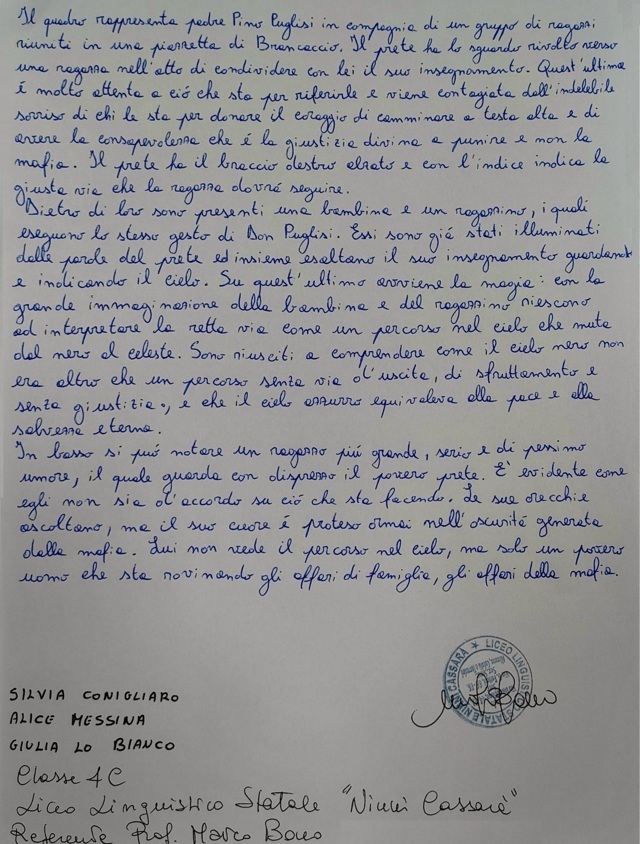 Il quadro rappresenta padre Pino Puglisi in compagnia di un gruppo di ragazzi
riuniti in una piazzetta di Brancaccio. Il prete ha lo sguardo rivolto verso
una ragazza nell'atto di condividere con lei il suo insegnamento. Quest'ultima
é molto attenta a ció che sta per riferirle e viene contagiata dall'indelebile
sorriso di chi le sta per donare il coraggio di camminare a testa alta e di
avere la consapevolezza che é la giustizia divina a punire e non la
mafia. Il prete ha il braccio destro alzato e con l'indice indica la
giusta via che la ragazza dovrá seguire.
Dietro di loro sono presenti una bambina e un ragazzino, i quali
eseguono lo stesso gesto di Don Puglisi. Essi sono giá stati illuminati
dalle parole del prete ed insieme esaltano il suo insegnamento guardando
e indicando il cielo. Su quest'ultimo avviene la magia: con la
grande immaginazione della bambina e del ragazzino riescono
ad interpretare la retta via come un percorso nel cielo che muta
dal nero al celeste. Sono riusciti a comprendere come il cielo nero non
era altro che un percorso senza via d'uscita, di sfruttamento e
senza giustizia, e che il cielo azzurro equivaleva alla pace e alla
salvezza eterna.
In basso si puó notare un ragazzo piú grande, serio e di pessimo
umore, il quale guarda con disprezzo il povero prete. É evidente come
egli non sia d'accordo su ció che sta facendo. Le sue orecchie
ascoltano, ma il suo cuore é proteso ormai nell'oscuritá generata
dalla mafia. Lui non vede il percorso nel cielo, ma solo un povero
uomo che sta rovinando gli affari di famiglia, gli affari della mafia.
LICEO LINGUIS
STATALE NINNI CASSARÀ
SILVIA CONIGLIARO
ALICE MESSINA
GIULIA LO BIANCO
Classe 4 C
Liceo Linguistico Statale "Ninni Cassarà"
Referente Prof. Marco Bono